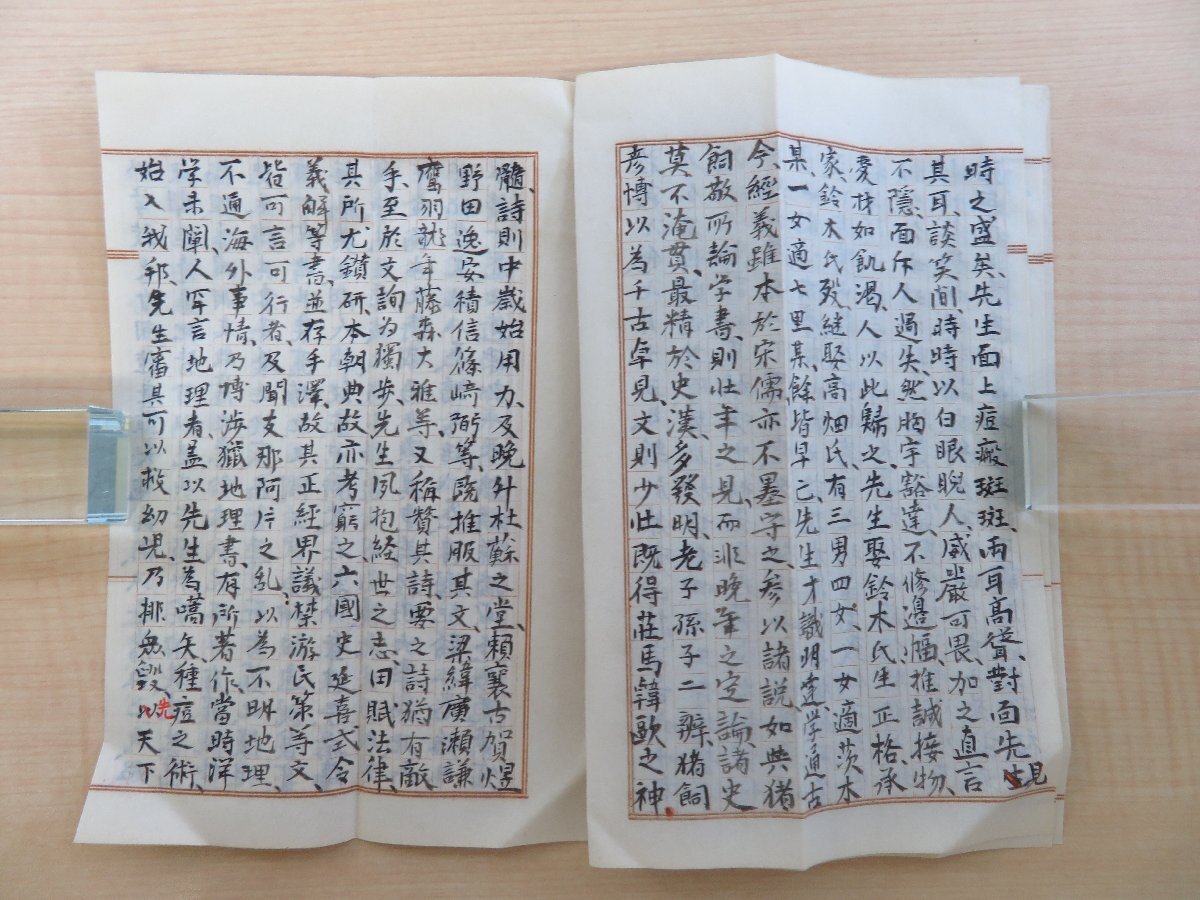 時之盛矣、先生面上痘瘢斑斑、両耳高聳、對面先見
生
其耳、談笑間、時時以白眼睨人、威嚴可畏、加之直言
不隱、面斥人過失、然胸宇豁達、不修邊幅、推誠接物、
愛材如飢渴、人以此歸之、先生娶鈴木氏、生正格、承
家、鈴木氏歿、継娶高畑氏、有三男四女、一女適茨木
某、一女適七里某、餘皆早亡、先生才識明達、学通古
今、經義雖本於宋儒、亦不墨守之、参以諸説、如與猪
飼敬所論学書、則壮年之見、而非晚年之定論、諸史
莫不淹貫、最精於史漢、多發明、老子孫子二辨、猪飼
彦博以為千古卓見、文則少壮既得莊馬韓歐之神
髓、詩則中歲始用力、及晚升杜蘇之堂、賴襄古賀煜
野田逸安積信篠﨑弼等、既推服其文、梁緯廣瀬謙
鷹羽龍年藤森大雅等、又稱贊其詩、要之詩猶有敵
手、至於文詢為獨步、先生夙抱経世之志、田賦法律、
其所尤鑽研、本朝典故亦考窮之、六國史延喜式令
義解等書、並存手澤、故其正經界議禁游民策等文、
皆可言可行者、及聞支那阿片之乱、以為不明地理、
不通海外事情、乃博渉獵地理書、有所著作、當時洋
学未闡、人罕言地理者、蓋以先生為嚆矢、種痘之術、
始入我邦、先生審其可以救幼児、乃排無毀、以先天下